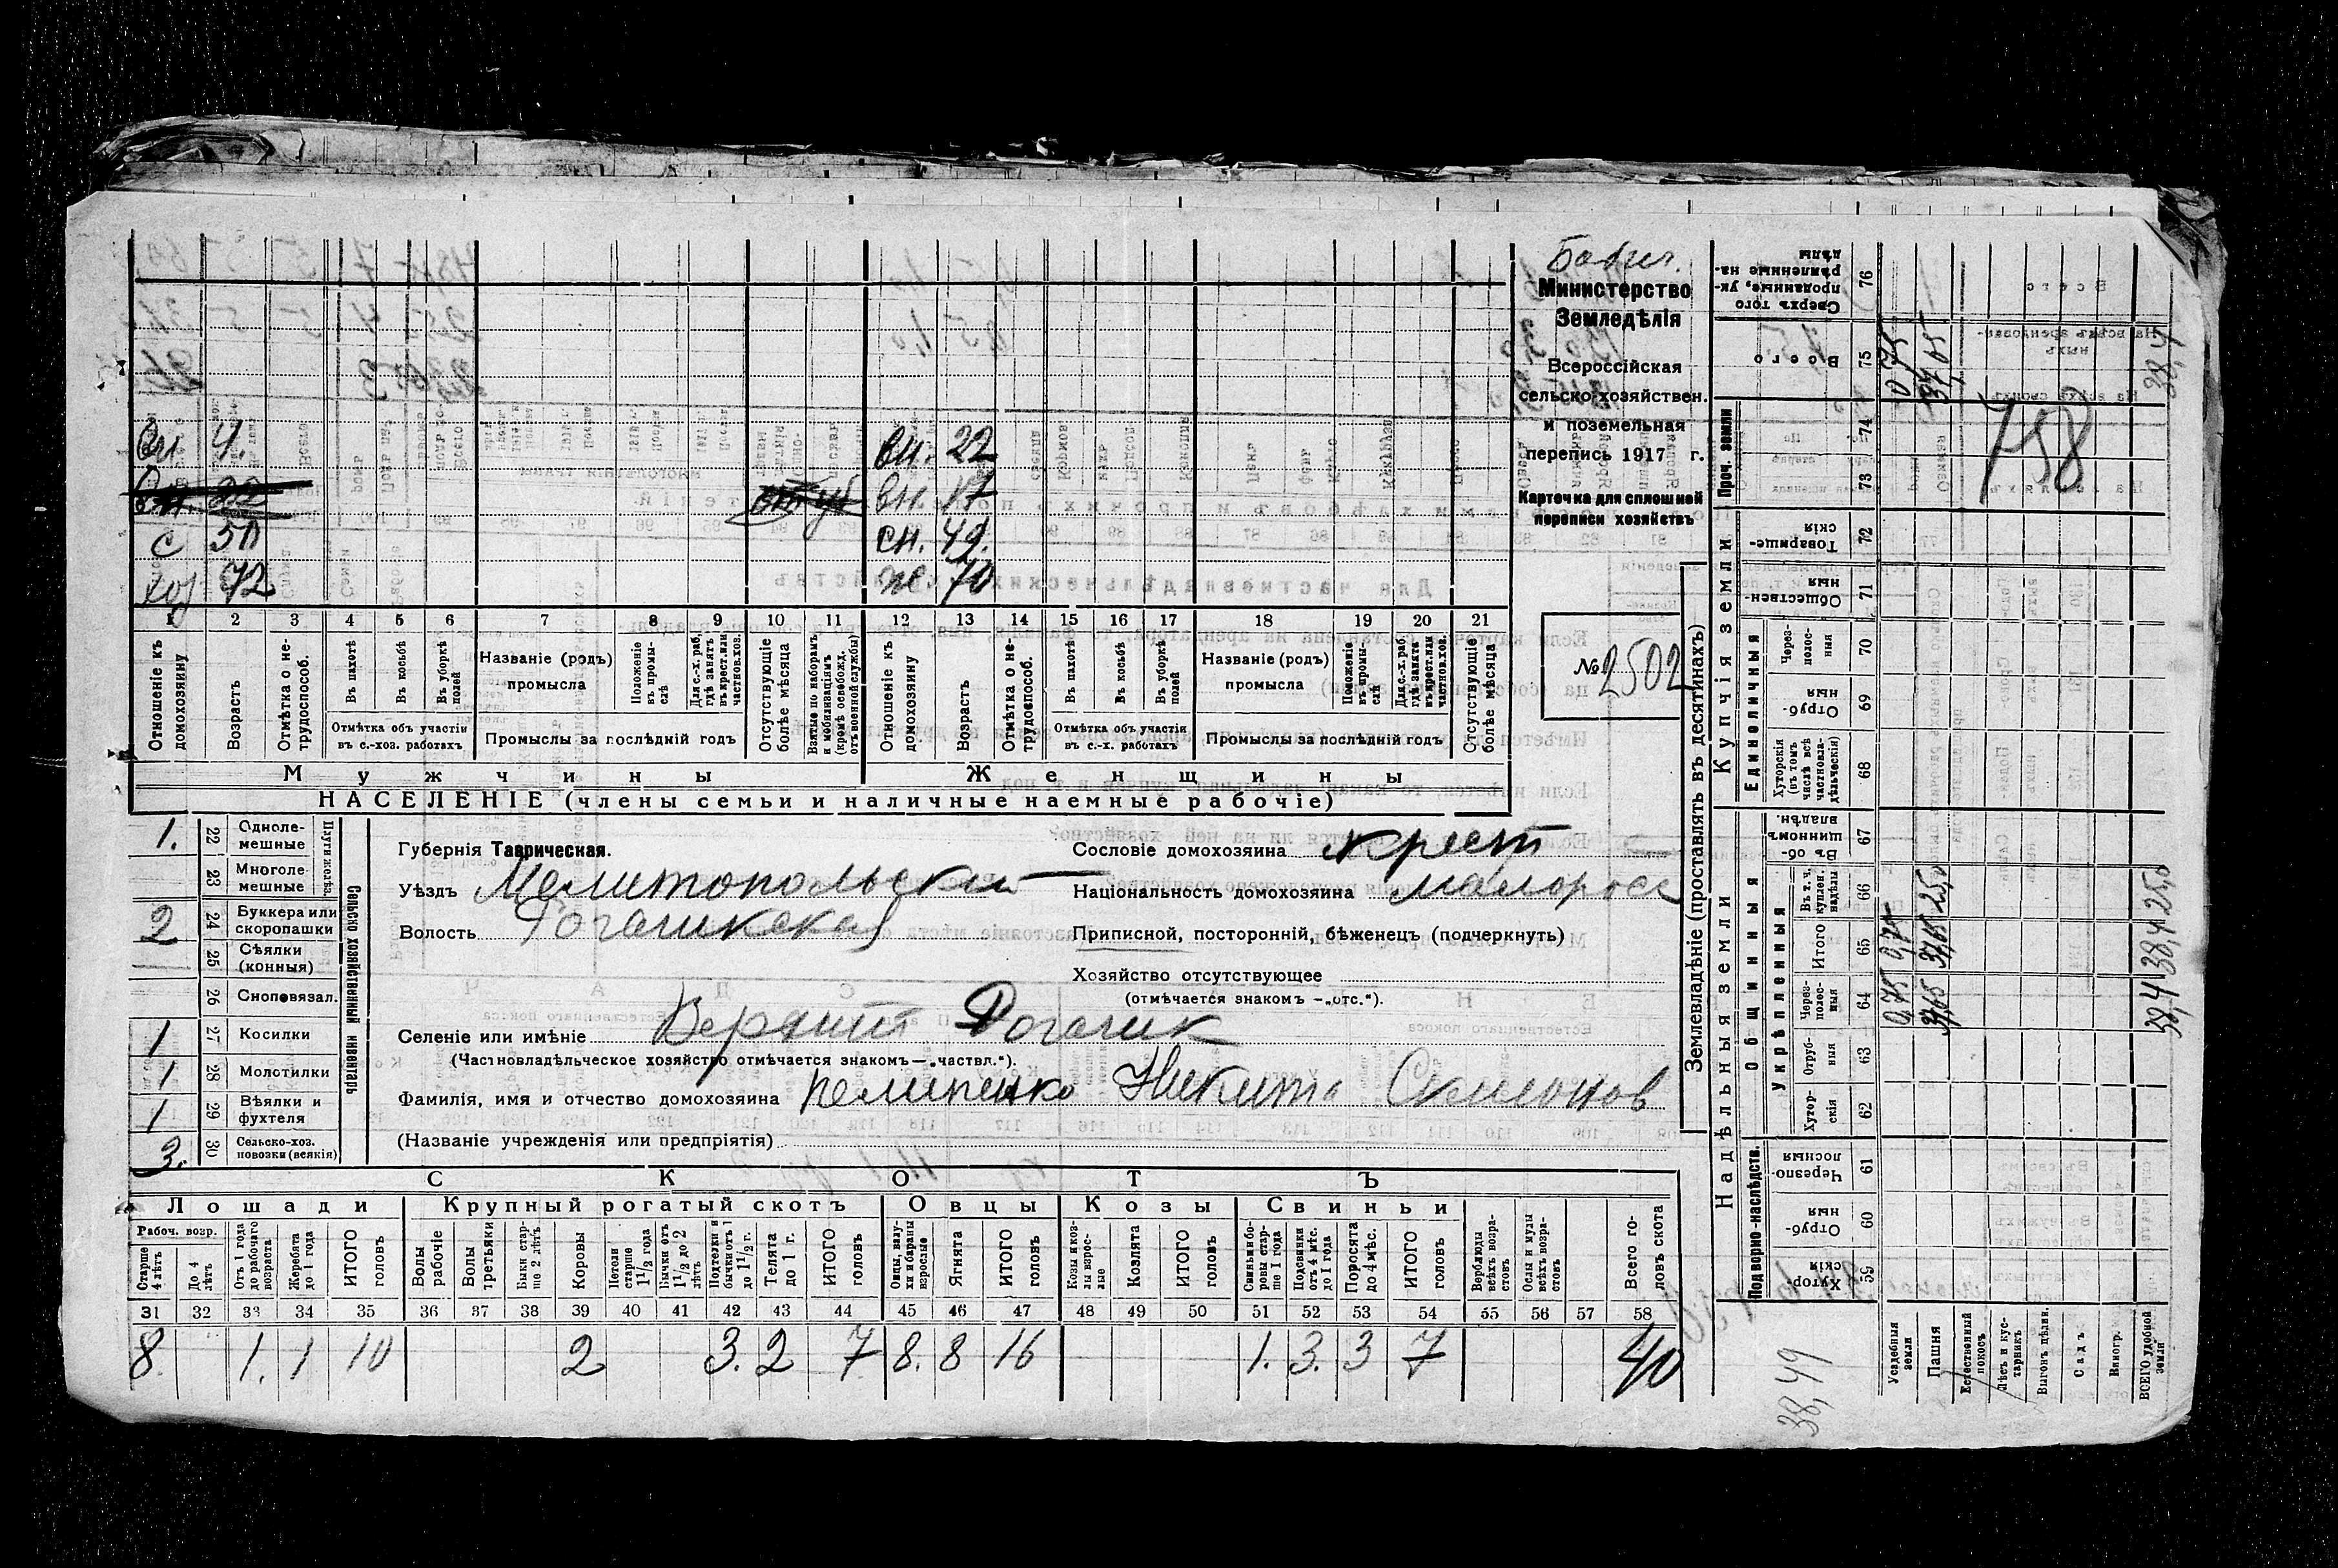 Бабич.
Министерство
Земледѣлія
Всероссійская
сельско-хозяйствен.
и поземельная
перепись 1917 г.
Карточка для сплошной
переписи хозяйствъ
№ 2502
вн 4. вн. 22
вн. 22 вн. 17
с 50 сн. 49.
хоз 72 ж. 70
1 2 3 4 5 6 7 8 9 10 11 12 13 14 15 16 17 18 19 20 21
Отношеніе къ домохозяину
Возрастъ
Отмѣтка о не-трудоспособ.
Въ пахотѣ
Въ косьбѣ
Въ уборкѣ полей
Отмѣтка объ участіи
въ с.-хоз. работахъ
Названіе (родъ)
промысла
Положеніе въ промы-слѣ
Для с.-х. раб. гдѣ занятъ въ крест. или частнов. хоз.
Промыслы за послѣдній годъ
Отсутствующіе болѣе мѣсяца
Взятые по наборамъ и мобилизаціямъ (кромѣ освобожд. отъ военной службы)
Отношеніе къ домохозяину
Возрастъ
Отмѣтка о не-трудоспособ.
Въ пахотѣ
Въ косьбѣ
Въ уборкѣ полей
Отмѣтка объ участіи
въ с.-х. работахъ
Названіе (родъ)
промысла
Положеніе въ промы-слѣ
Для с.-х. раб. гдѣ занята въ крест. или частнов. хоз.
Промыслы за послѣдній годъ
Отсутствующіе болѣе мѣсяца
Мужчины Женщины
НАСЕЛЕНІЕ (члены семьи и наличные наемные рабочіе)
Сельско хозяйственный инвентарь
Плуги желѣз.
1. 22 Одноле-мешные
23 Многоле-мешные
2 24 Буккера или скоропашки
25 Сѣялки (конныя)
26 Сноповязал.
1 27 Косилки
1 28 Молотилки
1 29 Вѣялки и фухтеля
3. 30 Сельско-хоз. повозки (всякія)
Губернія Таврическая.
Уѣздъ Мелитопольский
Волость Рогачикская
Сословіе домохозяина крест
Національность домохозяина малоросс
Приписной, посторонній, бѣженец (подчеркнуть)
Хозяйство отсутствующее
(отмѣчается знакомъ —„отс.“).
Селеніе или имѣніе Верхний Рогачик
(Частновладѣльческое хозяйство отмѣчается знакомъ—„частвл.“).
Фамилія, имя и отчество домохозяина Пелипенко Никита Семионов
(Названіе учрежденія или предпріятія)
СКОТЪ
Лошади Крупный рогатый скотъ Овцы Козы Свиньи
Рабоч. возр.
Старше 4 лѣтъ
До 4 лѣтъ
Отъ 1 года до рабочаго возраста
Жеребята до 1 года
ИТОГО головъ
Волы рабочіе
Волы третьяки
Быки стар-ше 2 лѣтъ
Коровы
Нетели старше 1 1/2 года
Бычки отъ 1 1/2 до 2 лѣтъ
Подтелки и бычки отъ 1 до 1 1/2 г.
Телята до 1 г.
ИТОГО головъ
Овцы, валу-хи и бараны взрослые
Ягнята
ИТОГО головъ
Козы и коз-лы взрос-лые
Козлята
ИТОГО головъ
Свиньи и бо-ровы стар-ше 1 года
Подсвинки отъ 4 мѣс. до 1 года
Поросята до 4 мѣс.
ИТОГО головъ
Верблюды всѣхъ возра-стовъ
Ослы и мулы всѣхъ возра-стовъ
Всего го-ловъ скота
31 32 33 34 35 36 37 38 39 40 41 42 43 44 45 46 47 48 49 50 51 52 53 54 55 56 57 58
8. 1. 1 10 2 3. 2 7 8. 8 16 1. 3. 3 7 40
Землевладѣніе (проставлять въ десятинахъ)
Надѣльныя земли
Купчія земли
Проч. земли
Подворно-наслѣдств.
Общинныя
Укрѣпленныя
Единоличныя
Хутор-скія 59
Отруб-ныя 60
Черезпо-лосныя 61
Хутор-скія 62
Отруб-ныя 63
Через-полос-ныя 64
Итого 65
Въ т. ч. куплен. надѣлы 66
Въ об-щинномъ владѣн. 67
Хуторскія (въ томъ числѣ всѣ частновла-дѣльческія) 68
Отруб-ныя 69
Через-полос-ныя 70
Обществен-ныя 71
Товарище-скія 72
73
74
Всего 75
Сверхъ того проданные, ук-рѣпленные на-дѣлы 76
Усадебныя земли 0,75 0,75 0,75
Пашня 37,65 37,65 25,0 37,65
Естественный покосъ
Лѣсъ и кус-тарникъ
Выгонъ цѣлин.
Садъ
Виногр.
ВСЕГО удобной земли 38,4 38,4 25,0 38,4
758
38,49